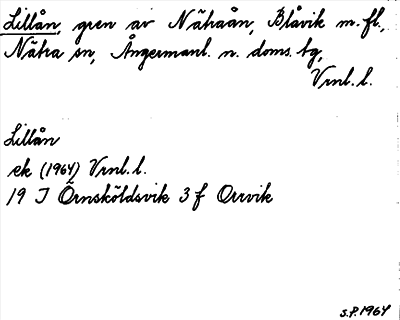 Lillån, gren av Nätraån, Blåvik m. fl.,
Nätra sn, Ångermanl. n. doms. tg,
Vrnl. l.
Lillån
ek (1964) Vrnl. l.
19 I Örnsköldsvik 3 f Orrvik
S.P. 1964